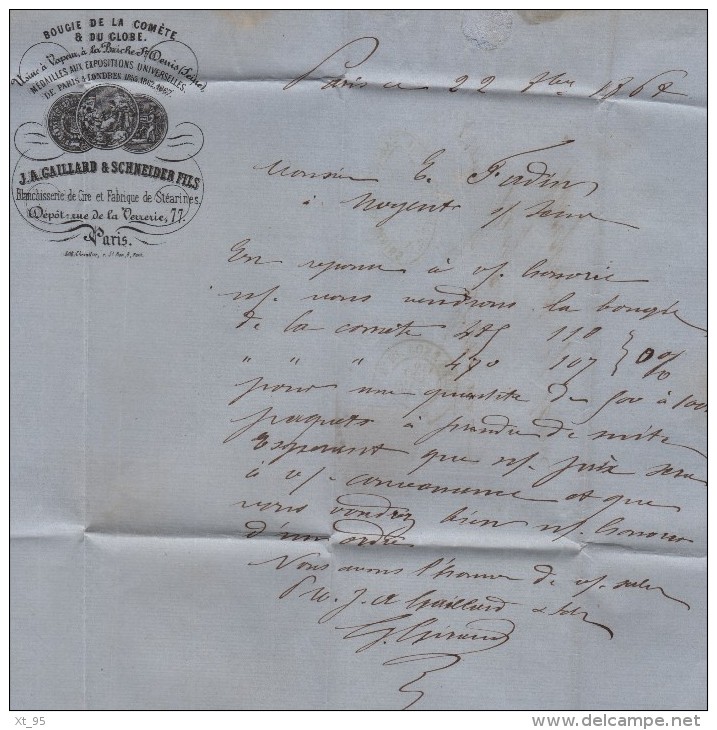 BOUGIE DE LA COMÈTE
& DU GLOBE.
Usine à Vapeur, à la Briche St Denis (Seine)
MÉDAILLES AUX EXPOSITIONS UNIVERSELLES
DE PARIS & LONDRES 1855, 1862, 1867.
J.A. GAILLARD & SCHNEIDER FILS
Blanchisserie de Cire et Fabrique de Stéarines,
Dépôt: rue de la Verrerie, 77.
Paris.
Paris ce 22 7bre 1868
Monsieur E.
à Nogent s/ Seine
En reponse à v/. honorée
n/. vous vendrons la bougie
de la comète 485 110 } 0 %
" " " 470 107
pour une quantité de 500 à 1000
paquets à prendre de suite
Esperant que n/. prix sera
à v/. convenance et que
vous voudrez bien n/. honorer
d'un ordre
Nous avons l'honneur de v/. saluer
Pr J. A Gaillard &
Xt_95
delcampe.net